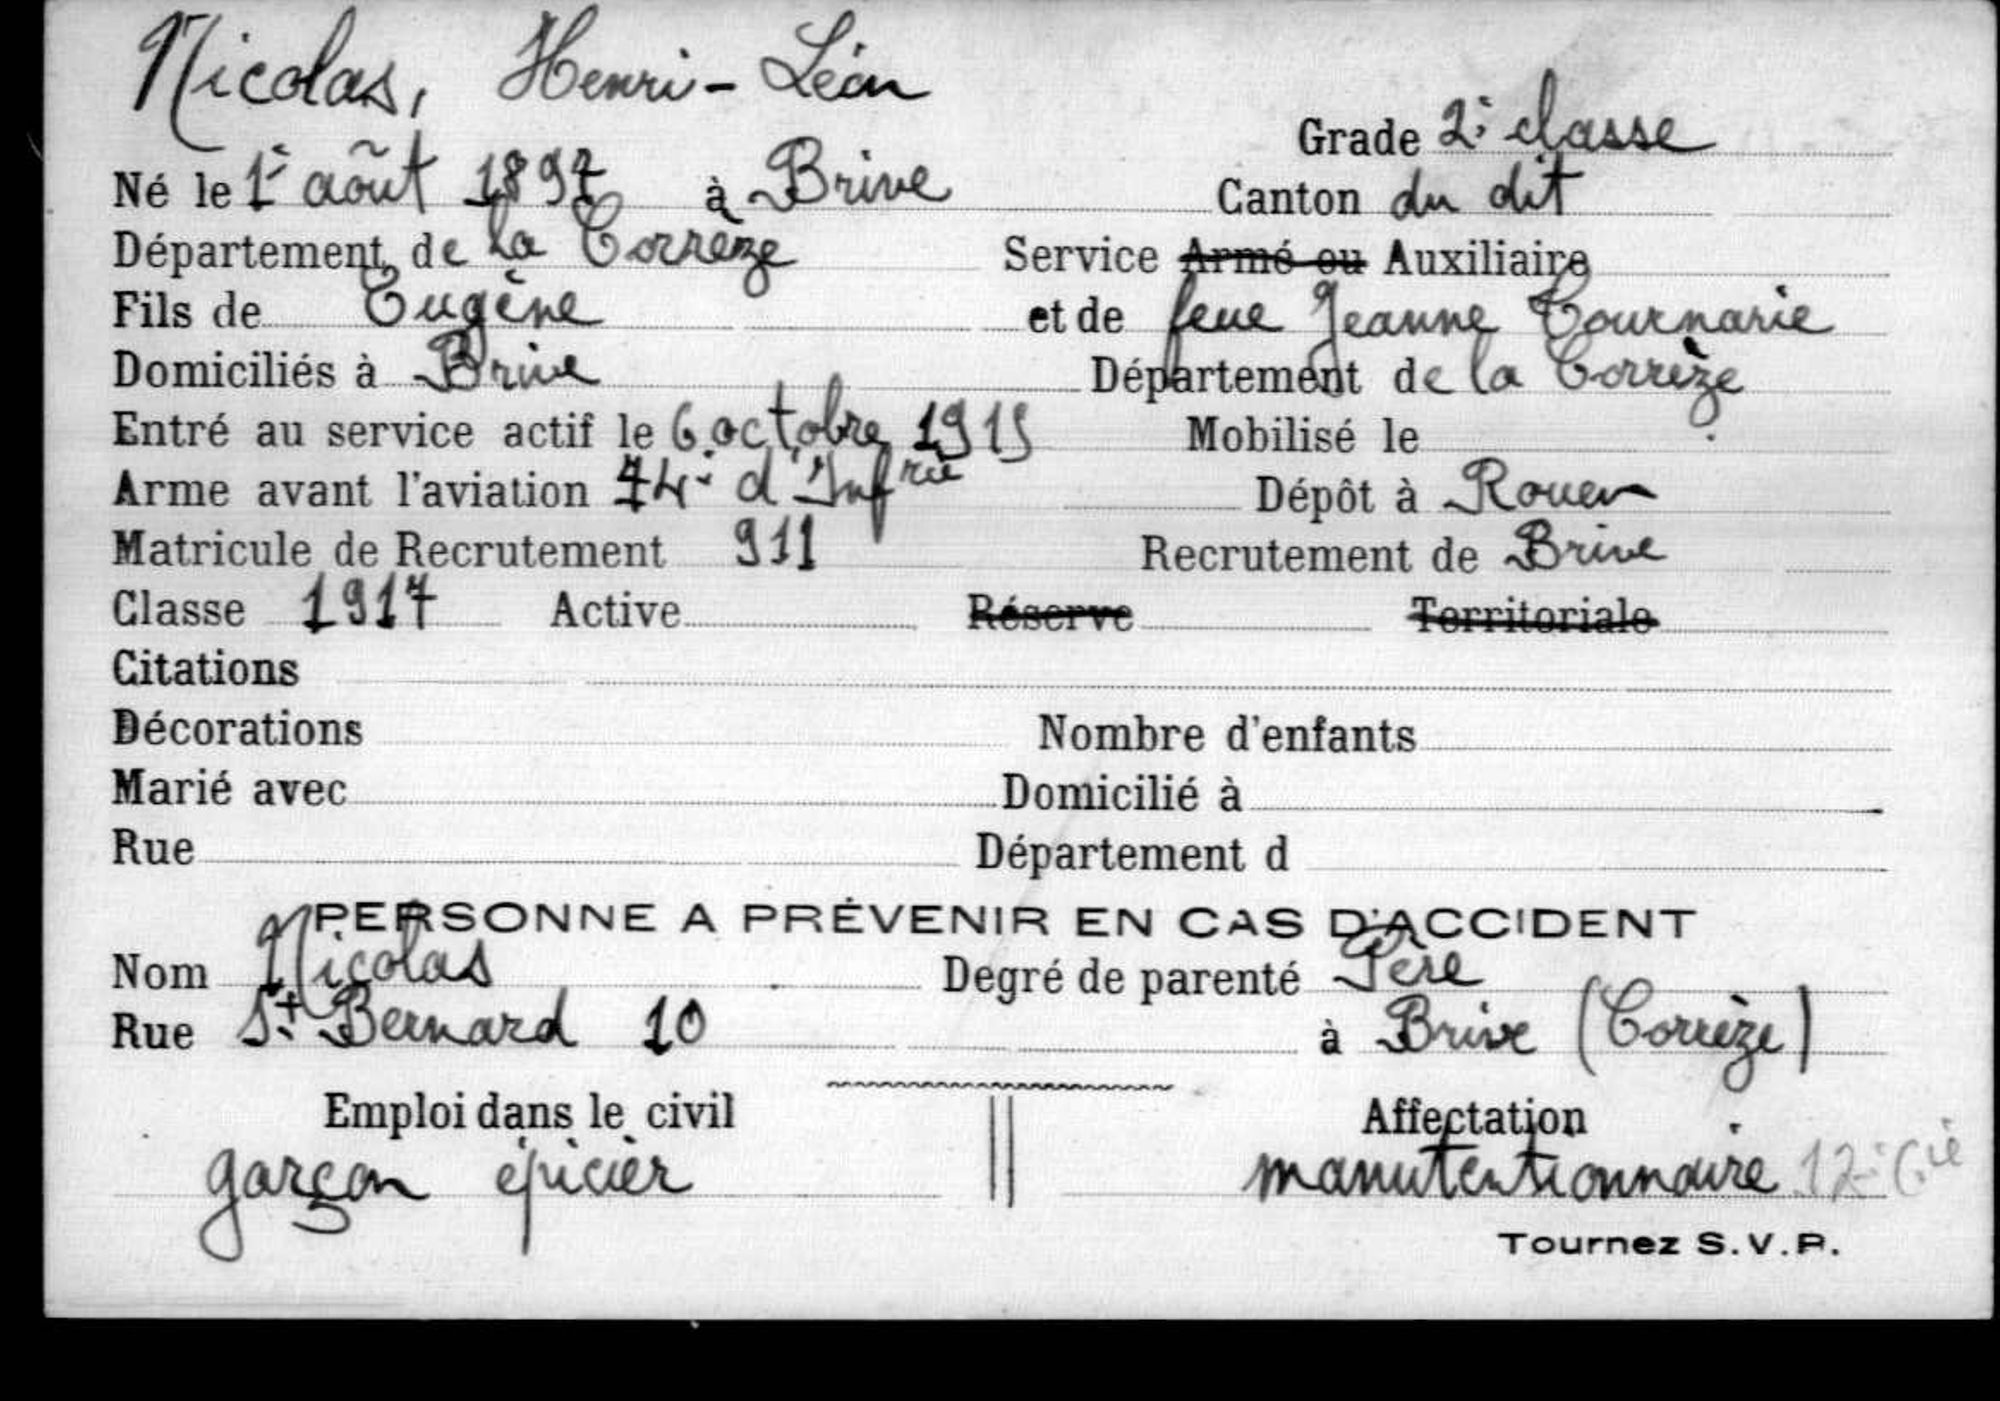 Nicolas, Henri-Léon
Grade 2e classe
Né le 1er août 1897 à Brive Canton du dit
Département de la Corrèze Service Armé ou Auxiliaire
Fils de Eugène et de feue Jeanne Tournarie
Domiciliés à Brive Département de la Corrèze
Entré au service actif le 6 octobre 1915 Mobilisé le
Arme avant l'aviation 74e d'Infrie Dépôt à Rouen
Matricule de Recrutement 911 Recrutement de Brive
Classe 1917 Active Réserve Territoriale
Citations
Décorations Nombre d'enfants
Marié avec Domicilié à
Rue Département d
PERSONNE A PRÉVENIR EN CAS D'ACCIDENT
Nom Nicolas Degré de parenté Père
Rue St Bernard 10 à Brive (Corrèze)
Emploi dans le civil Affectation
garçon épicier manutentionnaire 12e Cie
Tournez S.V.P.